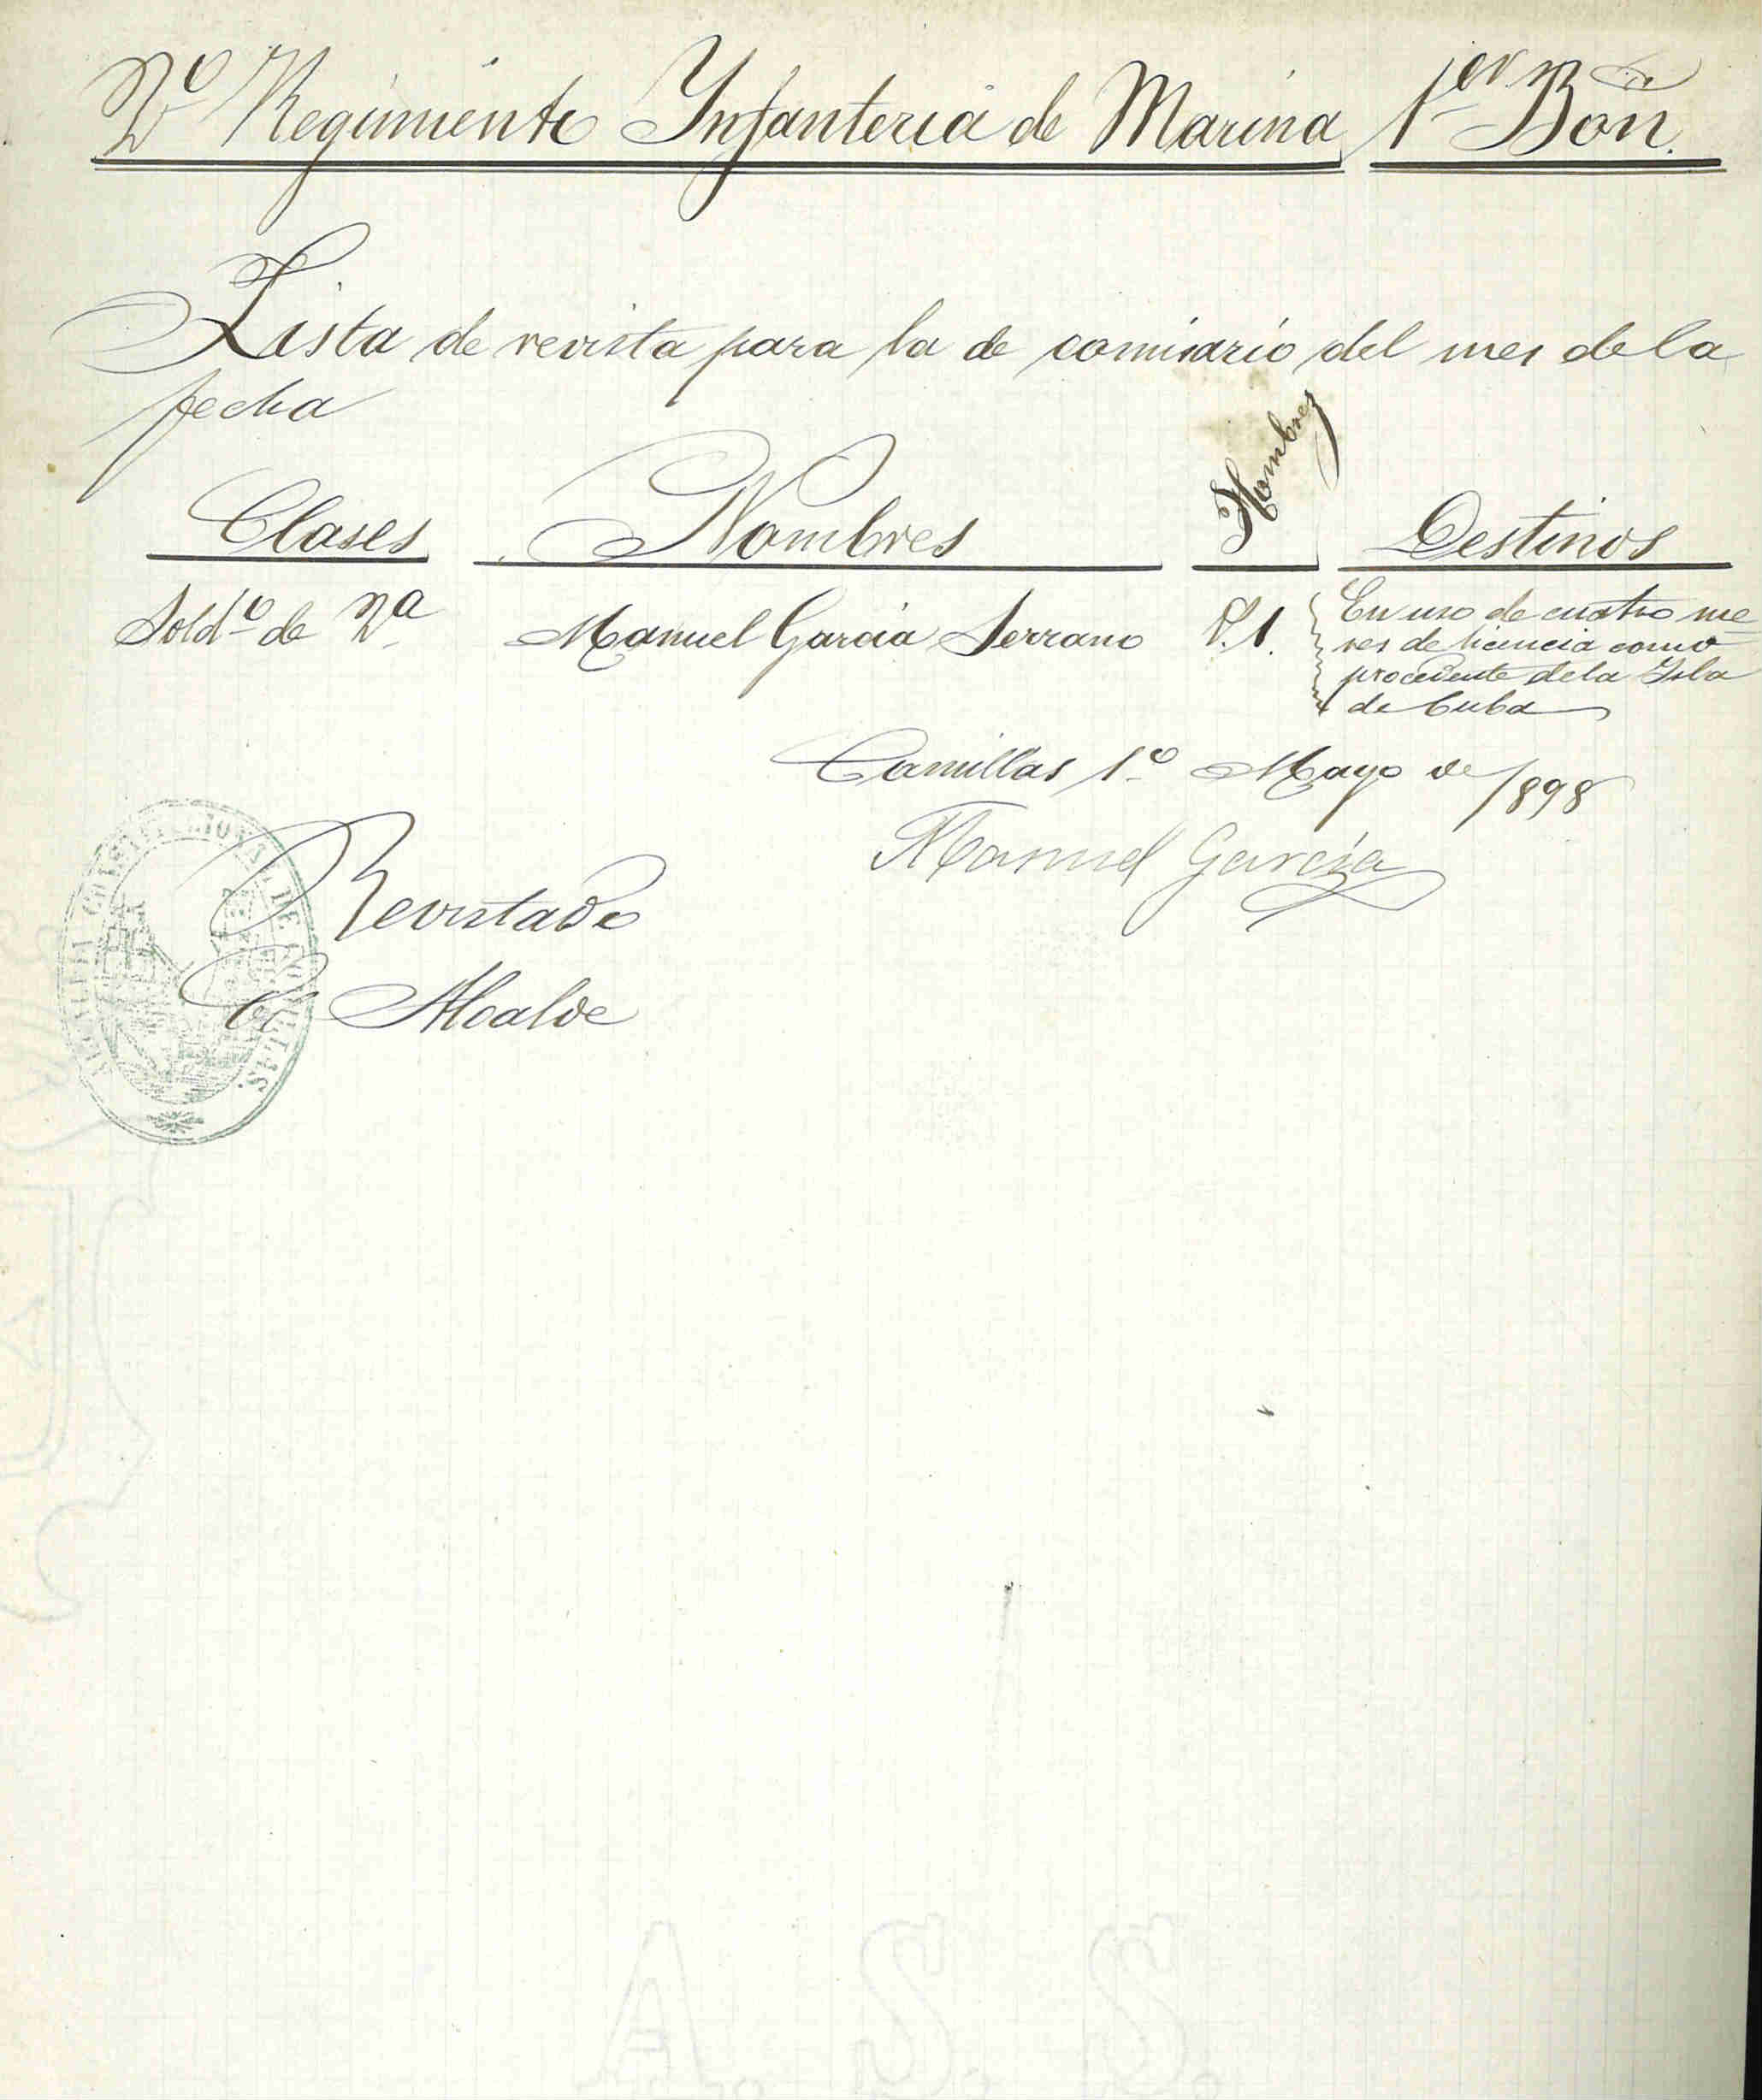 2º Regimiento Infanteria de Marina 1er Bon.
Lista de revista para la de comisario del mes de la
fecha
Clases Nombres Hombres Destinos
Soldº de 2ª Manuel Garcia Serrano P. 1. En uso de cuatro me
ses de licencia como
procedente de la Isla
de Cuba
Comillas 1º Mayo de 1898
Manuel Garcia
Revistado
El Alcalde
ALCALDIA CONSTITUCIONAL DE COMILLAS.
A. S. S.